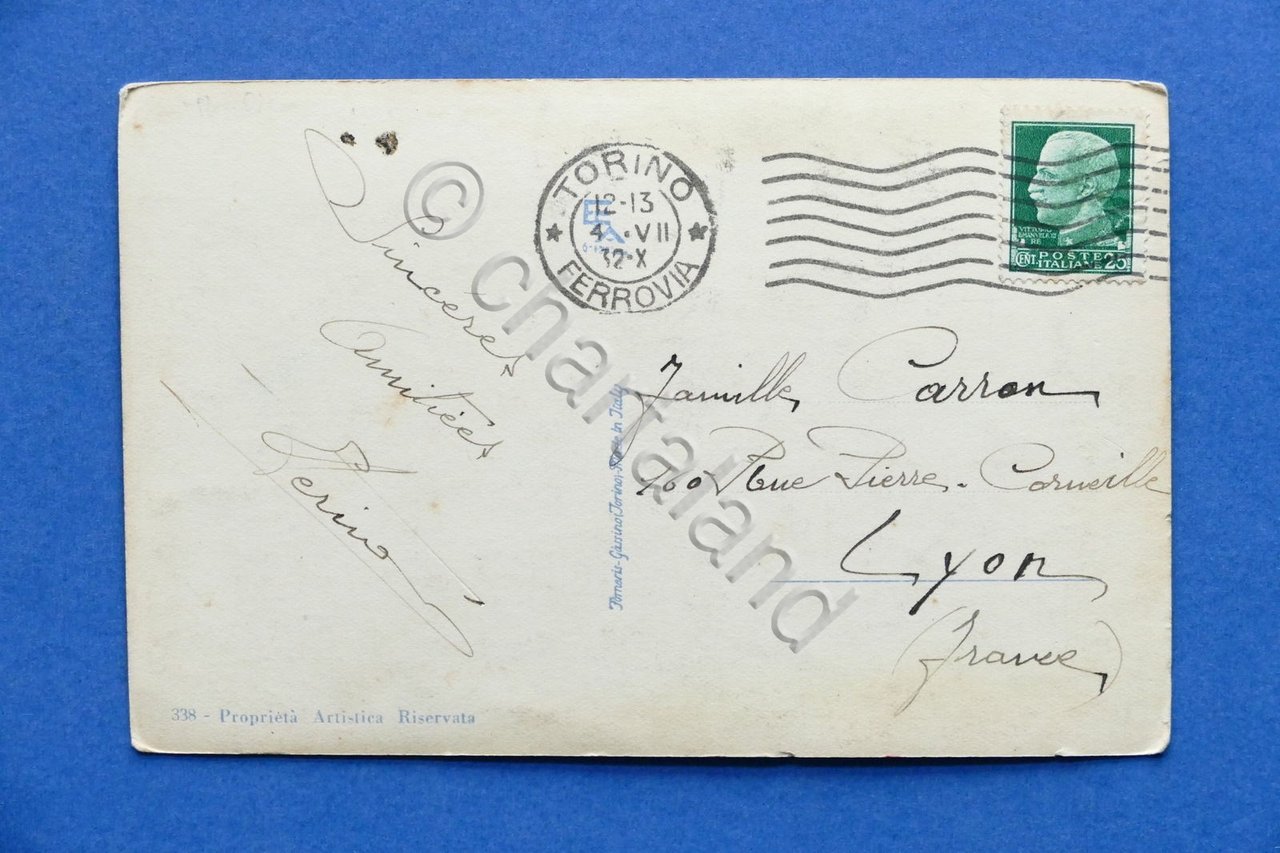 Sinceres
Amitiées
Perino
338 - Proprietà Artistica Riservata
TORINO
12-13
4 ·VII
32·X
FERROVIA
VITTORIO
EMANUELE III
RE
POSTE
CENT ITALIANE 25
Made in Italy
Famille Carron
Rue Pierre-Corneille
Lyon
(France)
© chartaland